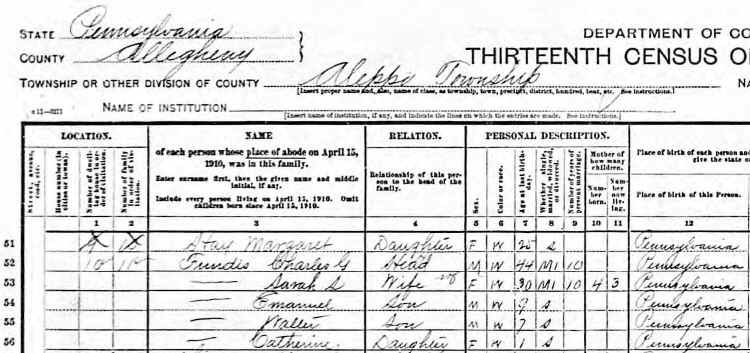 STATE Pennsylvania
COUNTY Allegheny
DEPARTMENT OF CO
THIRTEENTH CENSUS O
TOWNSHIP OR OTHER DIVISION OF COUNTY Aleppo Township
NA
[Insert proper name and, also, name of class, as township, town, precinct, district, hundred, beat, etc. See instructions.]
NAME OF INSTITUTION
[Insert name of institution, if any, and indicate the lines on which the entries are made. See instructions.]
LOCATION. NAME RELATION. PERSONAL DESCRIPTION.
Street, avenue, road, etc.
House number (in cities or towns).
Number of dwelling house in order of visitation.
Number of family in order of visitation.
of each person whose place of abode on April 15, 1910, was in this family.
Enter surname first, then the given name and middle initial, if any.
Include every person living on April 15, 1910. Omit children born since April 15, 1910.
Relationship of this person to the head of the family.
Sex.
Color or race.
Age at last birthday.
Whether single, married, widowed, or divorced.
Number of years of present marriage.
Mother of how many children.
Number born.
Number now living.
Place of birth of each person and
give the state
Place of birth of this Person.
1 2 3 4 5 6 7 8 9 10 11 12
51 Hay Margaret Daughter F W 25 S Pennsylvania
52 10 Charles G Head M W 44 M1 10 Pennsylvania
53 — Sarah S Wife F W 30 M1 10 4 3 Pennsylvania
54 — Emanuel Son M W 9 S Pennsylvania
55 — Walter Son M W 7 S Pennsylvania
56 — Catherine Daughter F W 1 S Pennsylvania